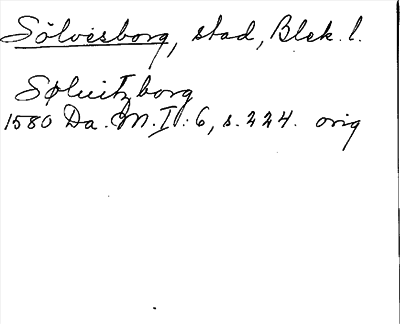 Sölvesborg, stad, Blek. l.
Søluitzborg
1580 Da. M. I: 6, s. 224. orig